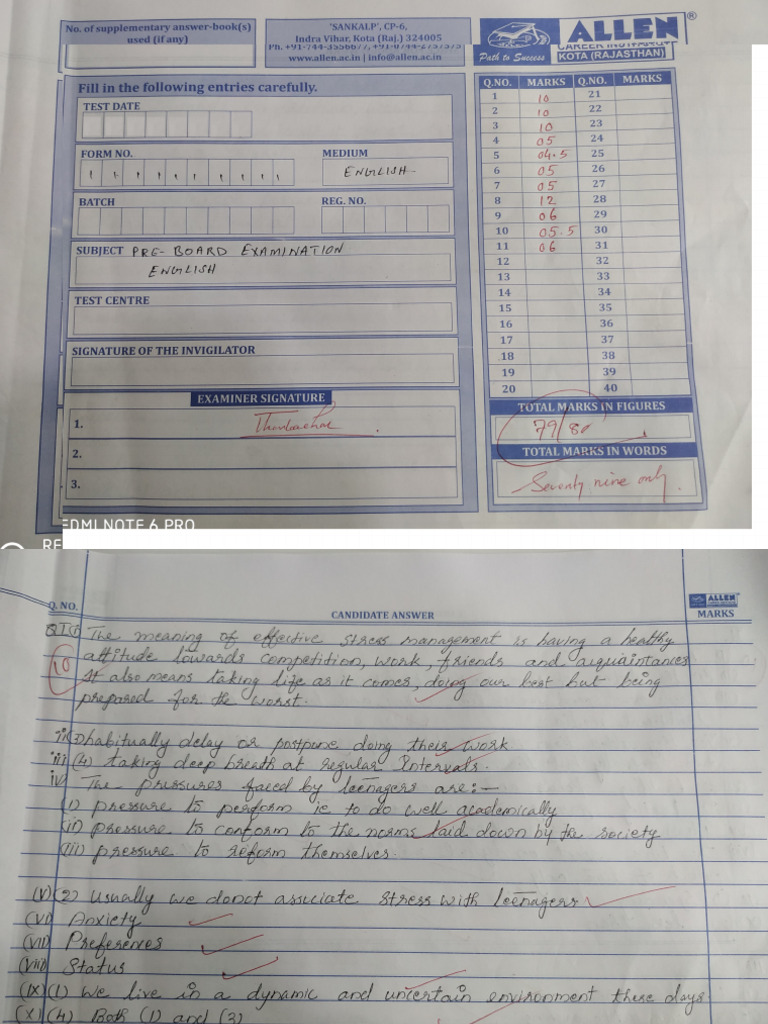 No. of supplementary answer-book(s)
used (if any)
'SANKALP', CP-6,
Indra Vihar, Kota (Raj.) 324005
Ph. +91-744-3556677, +91-0744-2757575
www.allen.ac.in | info@allen.ac.in
ALLEN®
CAREER INSTITUTE
Path to Success
KOTA (RAJASTHAN)
Fill in the following entries carefully.
TEST DATE
FORM NO.
MEDIUM
ENGLISH
BATCH
REG. NO.
SUBJECT PRE-BOARD EXAMINATION
ENGLISH
TEST CENTRE
SIGNATURE OF THE INVIGILATOR
EXAMINER SIGNATURE
1.
2.
3.
Q.NO. MARKS Q.NO. MARKS
1 10 21
2 10 22
3 10 23
4 05 24
5 04.5 25
6 05 26
7 05 27
8 12 28
9 06 29
10 05.5 30
11 06 31
12 32
13 33
14 34
15 35
16 36
17 37
18 38
19 39
20 40
TOTAL MARKS IN FIGURES
79/80
TOTAL MARKS IN WORDS
Seventy nine only.
EDMI NOTE 6 PRO
RE
Q. NO.
CANDIDATE ANSWER
ALLEN
MARKS
Q1(i) The meaning of effective stress management is having a healthy
10 attitude towards competition, work, friends and acquaintances
It also means taking life as it comes, doing our best but being
prepared for the worst.
ii habitually delay or postpone doing their work
iii (4) taking deep breath at regular Intervals.
iv The pressures faced by teenagers are:-
(i) pressure to perform ie to do well academically
(ii) pressure to conform to the norms laid down by the society
(iii) pressure to reform themselves.
(v)(2) Usually we donot associate stress with teenagers
(vi) Anxiety
(vii) Preferences
(viii) Status
(ix)(1) We live in a dynamic and uncertain environment these days
(x)(4) Both (1) and (3)